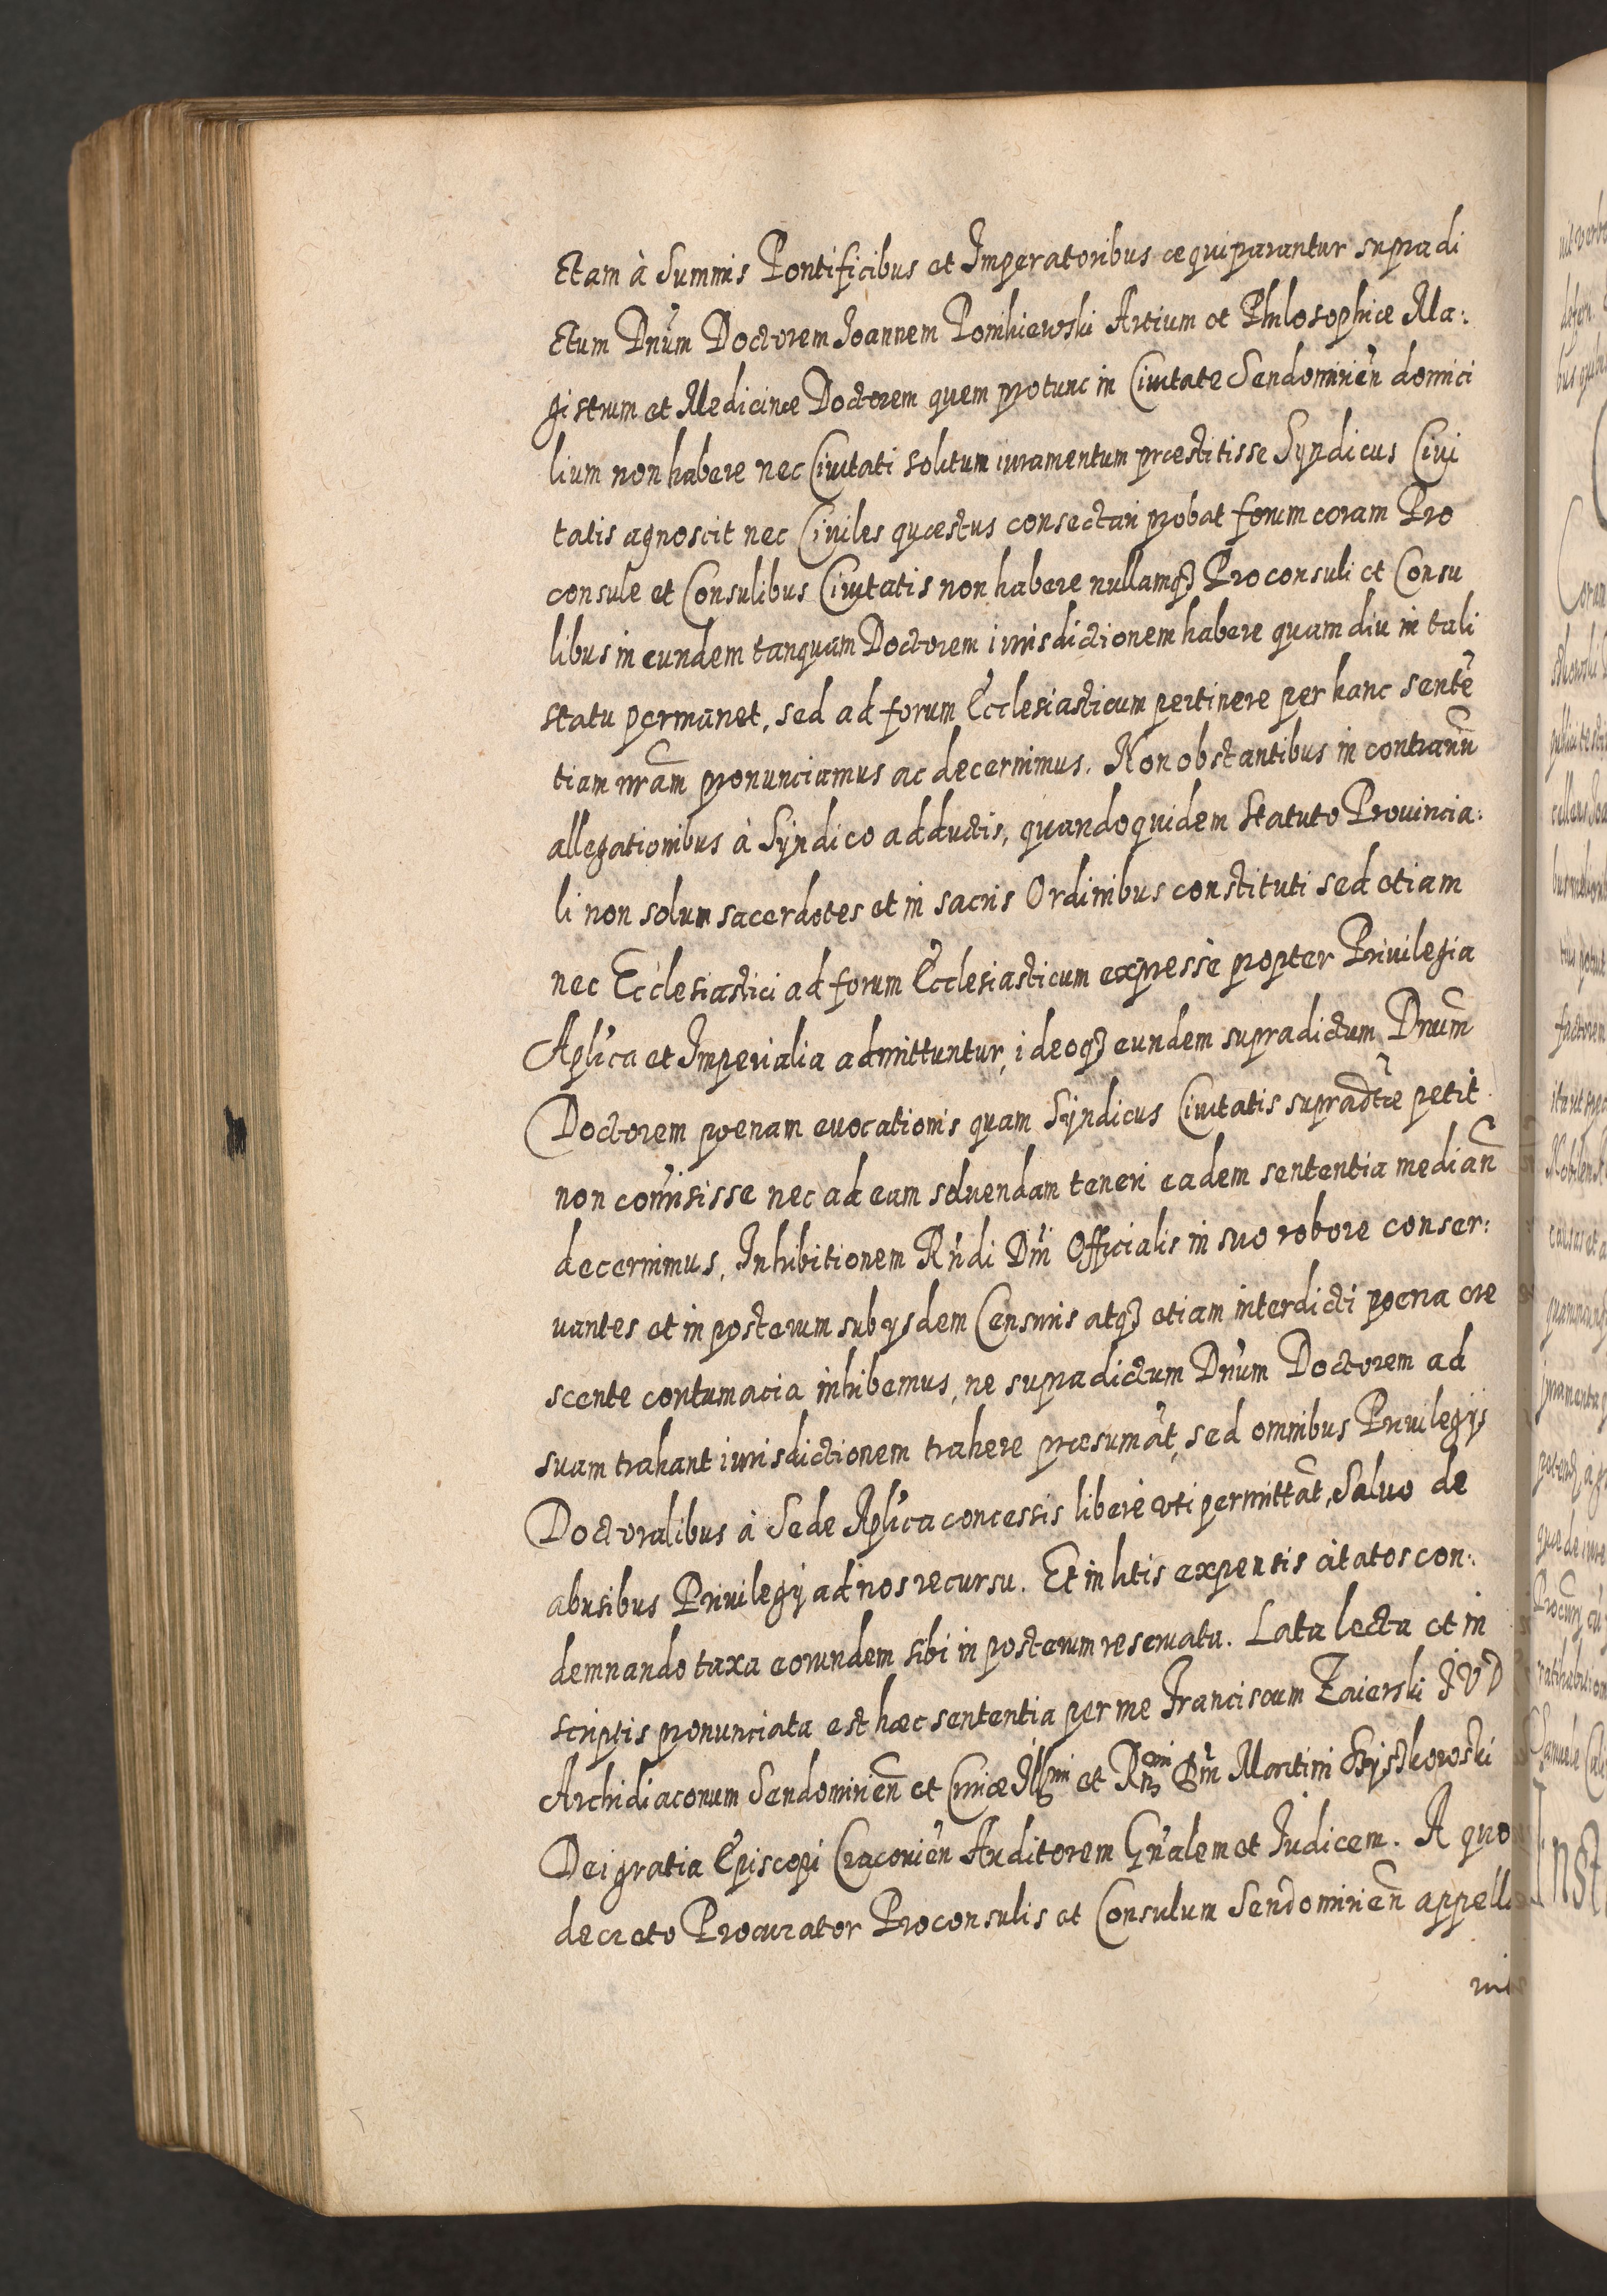 ctam à Summis Pontificibus et Imperatoribus æquiparantur supradi
ctum Dnum Doctorem Joannem Romhiewski Artium et Philosophiæ Ma:
gistrum et Medicinæ Doctorem quem protunc in Civitate Sendomirien̄ domici
lium non habere nec Civitati solitum iuramentum præstitisse Syndicus Civi
tatis agnoscit nec Civiles quæstus consectari probat forum coram Pro
consule et Consulibus Civitatis non habere nullamqȝ Proconsuli et Consu
libus in eundem tanquam Doctorem iurisdictionem habere quam diu in tali
statu permanet, sed ad forum Ecclesiasticum pertinere per hanc sentē
tiam nr̄am pronunciamus ac decernimus. Non obstantibus in contrariū
allegationibus à Syndico adductis, quandoquidem Statuto Provincia:
li non solum sacerdotes et in sacris Ordinibus constituti sed etiam
nec Ecclesiastici ad forum Ecclesiasticum expressè propter Privilegia
Aplica et Imperialia admittuntur, ideoqȝ eundem supradictum Dnum̄
Doctorem poenam evocationis quam Syndicus Civitatis supradtæ petit
non com̄isisse nec ad eam solvendam teneri eadem sententia median̄
decernimus, Inhibitionem Rn̄di Dn̄i Officialis in suo robore conser:
vantes et in posterum sub ysdem Censuris atqȝ etiam interdicti poena cre
scente contumacia inhibemus, ne supradictum Dnum Doctorem ad
suam trahant iurisdictionem trahere præsumāt, sed omnibus Privilegijs
Doctoralibus à Sede Aplica concessis liberè uti permittāt, Salvo de
abusibus Privilegij ad nos recursu. Et in litis expensis citatos con:
demnando taxa eorundem sibi in posterum reservata. Lata lecta et in
scriptis pronunciata est hæc sententia per me Franciscum Zaierski JVD
Archidiaconum Sendomirien̄ et Curiæ Illmi et Rmi Dn̄i Martini Szyszkowski
Dei gratia Episcopi Cracovien̄ Auditorem Gn̄alem et Judicem. A quo
decreto Procurator Proconsulis et Consulum Sendomirien̄ appella